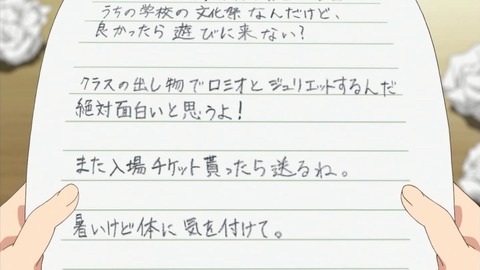 うちの学校の文化祭なんだけど、
良かったら遊びに来ない?
クラスの出し物でロミオとジュリエットするんだ
絶対面白いと思うよ!
また入場チケット貰ったら送るね。
暑いけど体に気を付けて。